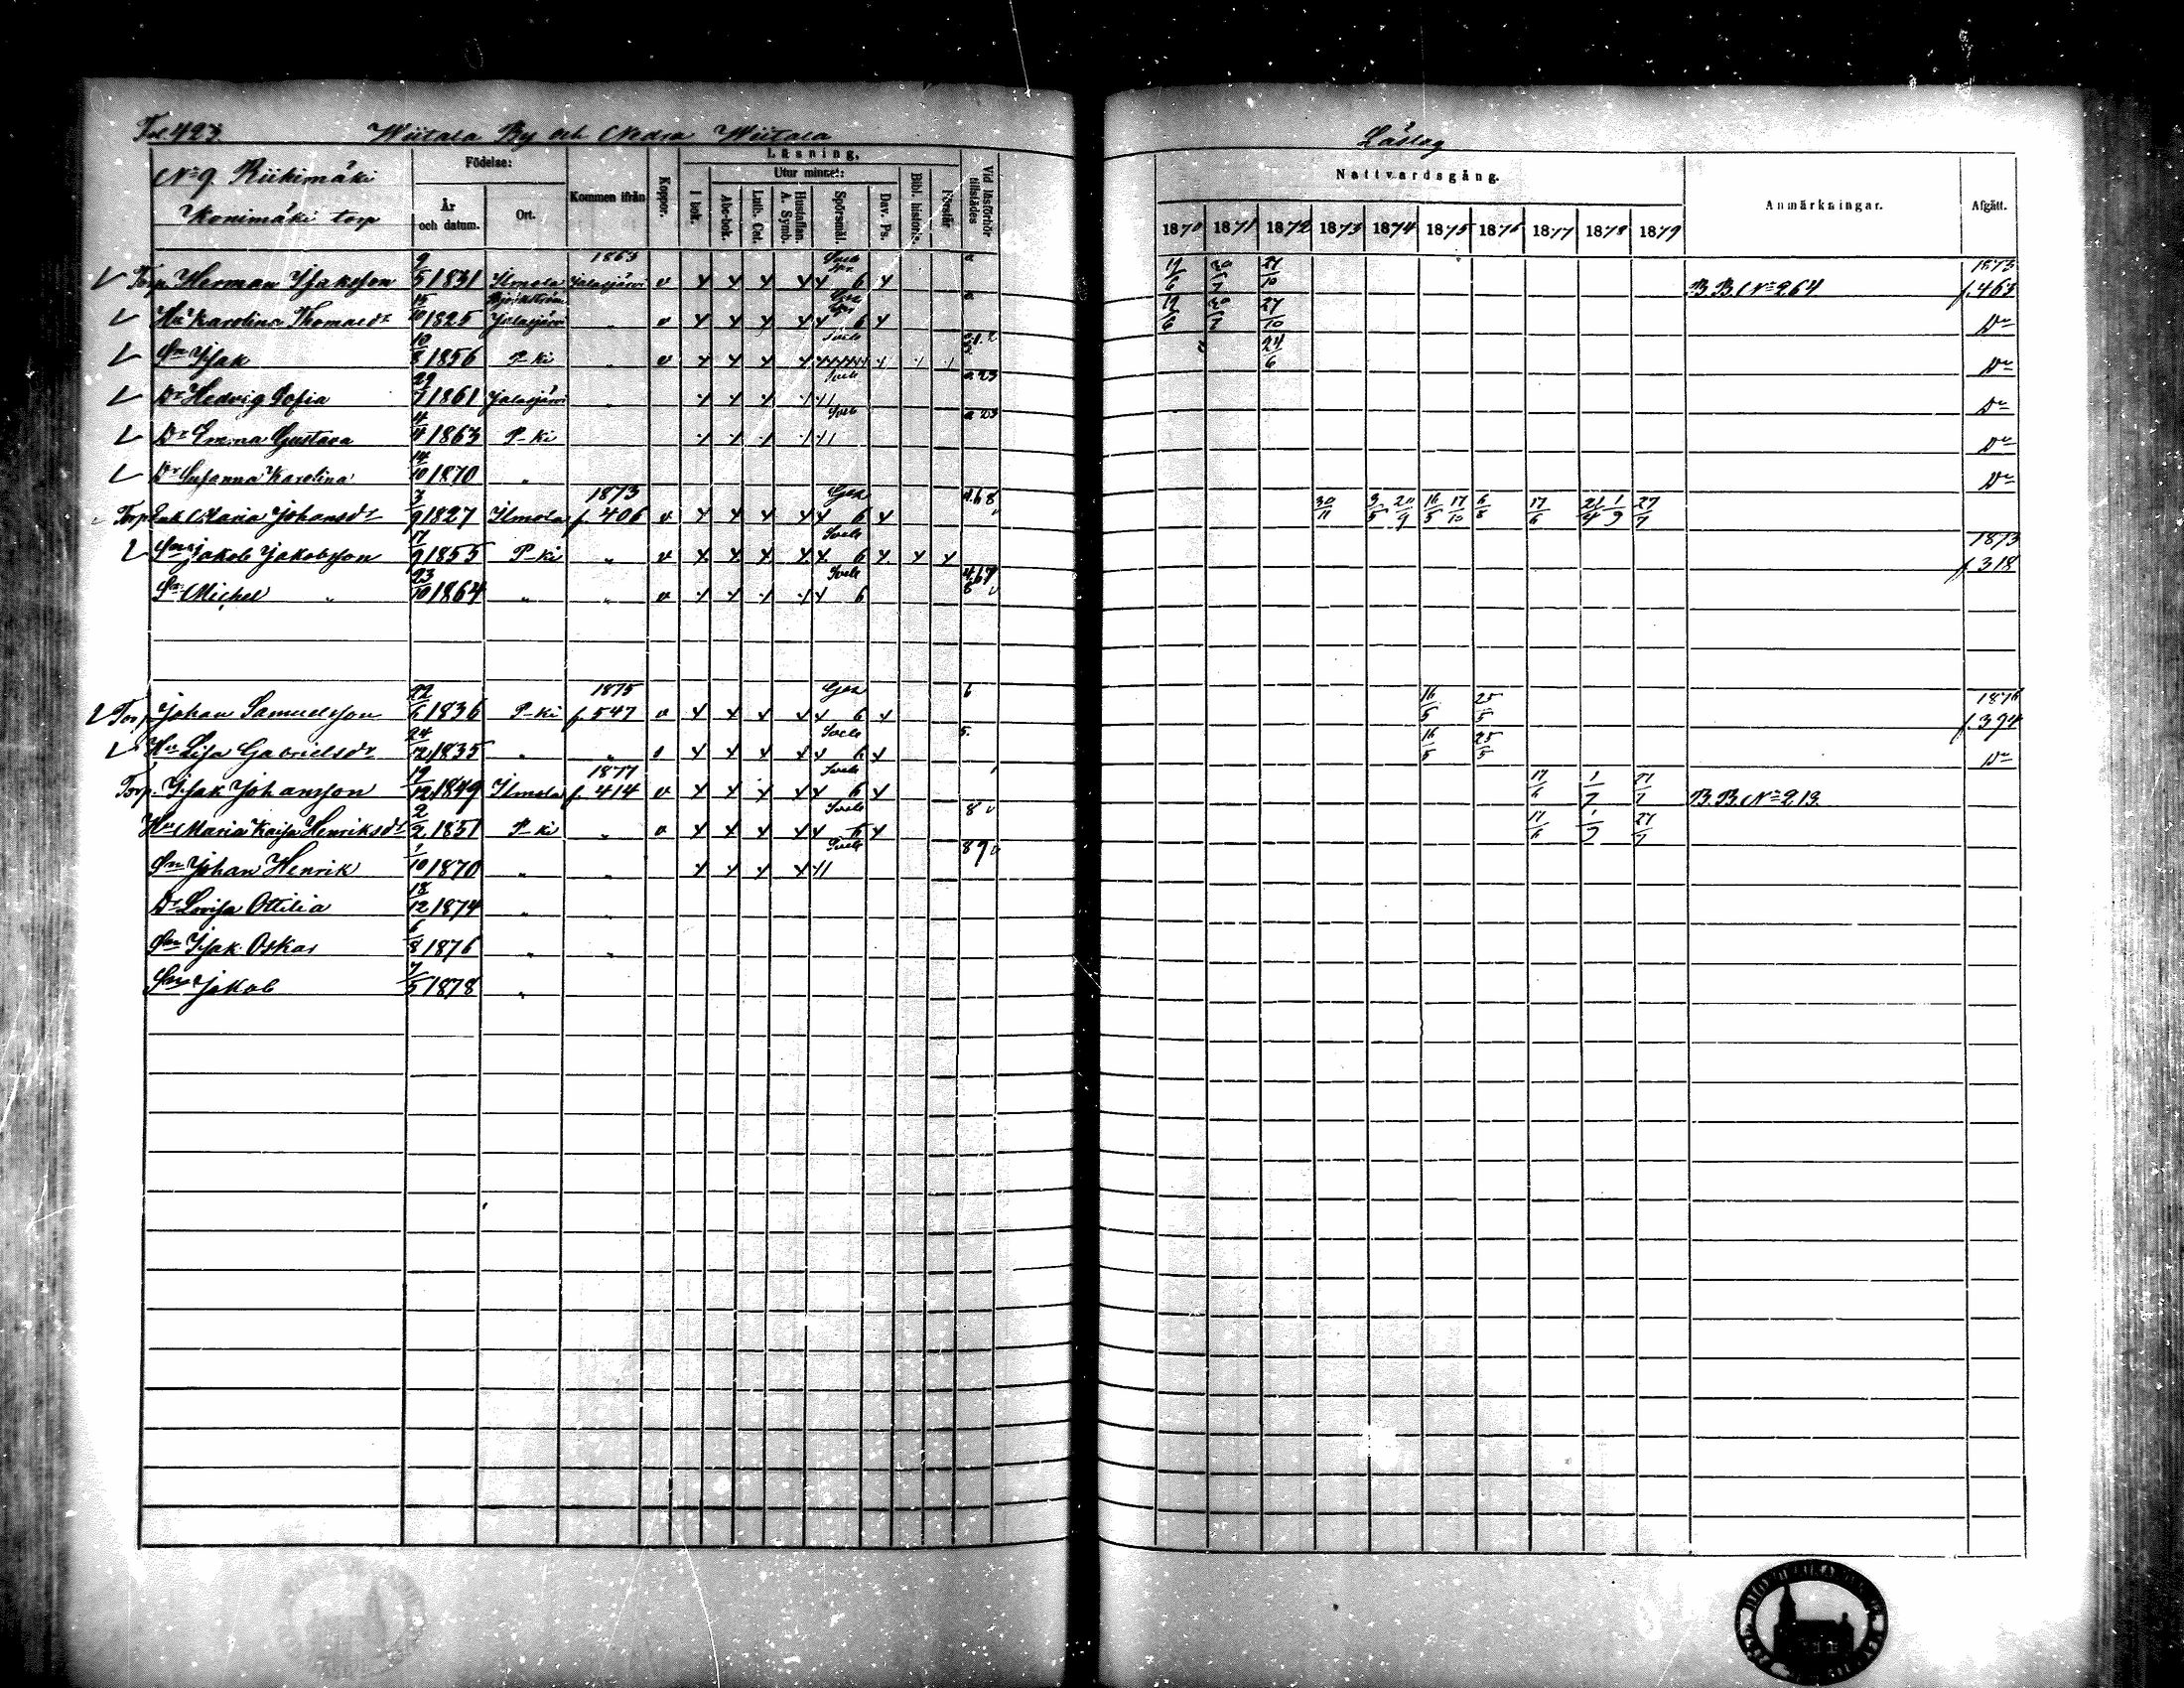 Fol 423. Wiitala By och Nedra Wiitala
N:o 9. Riihimäki
Konimäki torp
Födelse:
År och datum. Ort. Kommen ifrån Koppor.
Läsning.
I bok. Utur minnet: Abc-bok. Luth. Cat. Hustaflan. A. Symb. Spörsmål. Dav. Ps. Bibl. historia. Förstår
Vid läsförhör tillstädes
Torp. Herman Isaksson 9/5 1831 Ilmola 1863 Jalasjärvi v 6
Hu Karolina Thomasdr 15/10 1825 Jalasjärvi " v 6
Sn Isak 10/8 1856 P-ki " v
Dr Hedvig Sofia 29/7 1861 Jalasjärvi "
Dr Emma Gustava 4/4 1863 P-ki
Dr Susanna Karolina 14/10 1870 "
Torp Enk Maria Johansdr 3/9 1827 Ilmola 1873 f. 406 v 6
Sn Jakob Jakobsson 17/9 1855 P-ki " v 6
Sn Michel " 23/10 1864 " " v 6
Torp. Johan Samuelsson 22/6 1836 P-ki 1875 f. 547 v 6
Hu Lisa Gabrielsdr 24/12 1835 " " 6
Torp. Isak Johansson 19/12 1849 Ilmola 1877 f. 414 v 6
Hu Maria Kaisa Henriksdr 2/2 1851 P-ki " v 6
Sn Johan Henrik 1/10 1870 " "
Dr Lovisa Ottilia 18/12 1874 " "
Sn Isak Oskar 6/8 1876 " "
Sn Jakob 7/5 1878 "
Läslag
Nattvardsgång. Anmärkningar. Afgått.
1870 1871 1872 1873 1874 1875 1876 1877 1878 1879
19/6 30/7 27/10 B.B. No 264 1873 f. 465
19/6 30/7 27/10 Do
24/6 Do
Do
Do
Do
30/11 9/5 20/9 16/5 17/10 6/8 17/6 21/4 1/9 27/7
1873 f. 318
16/5 25/5 1876 f. 394
16/5 25/5 Do
17/6 1/7 27/7 B.B. No 213.
17/6 1/7 27/7